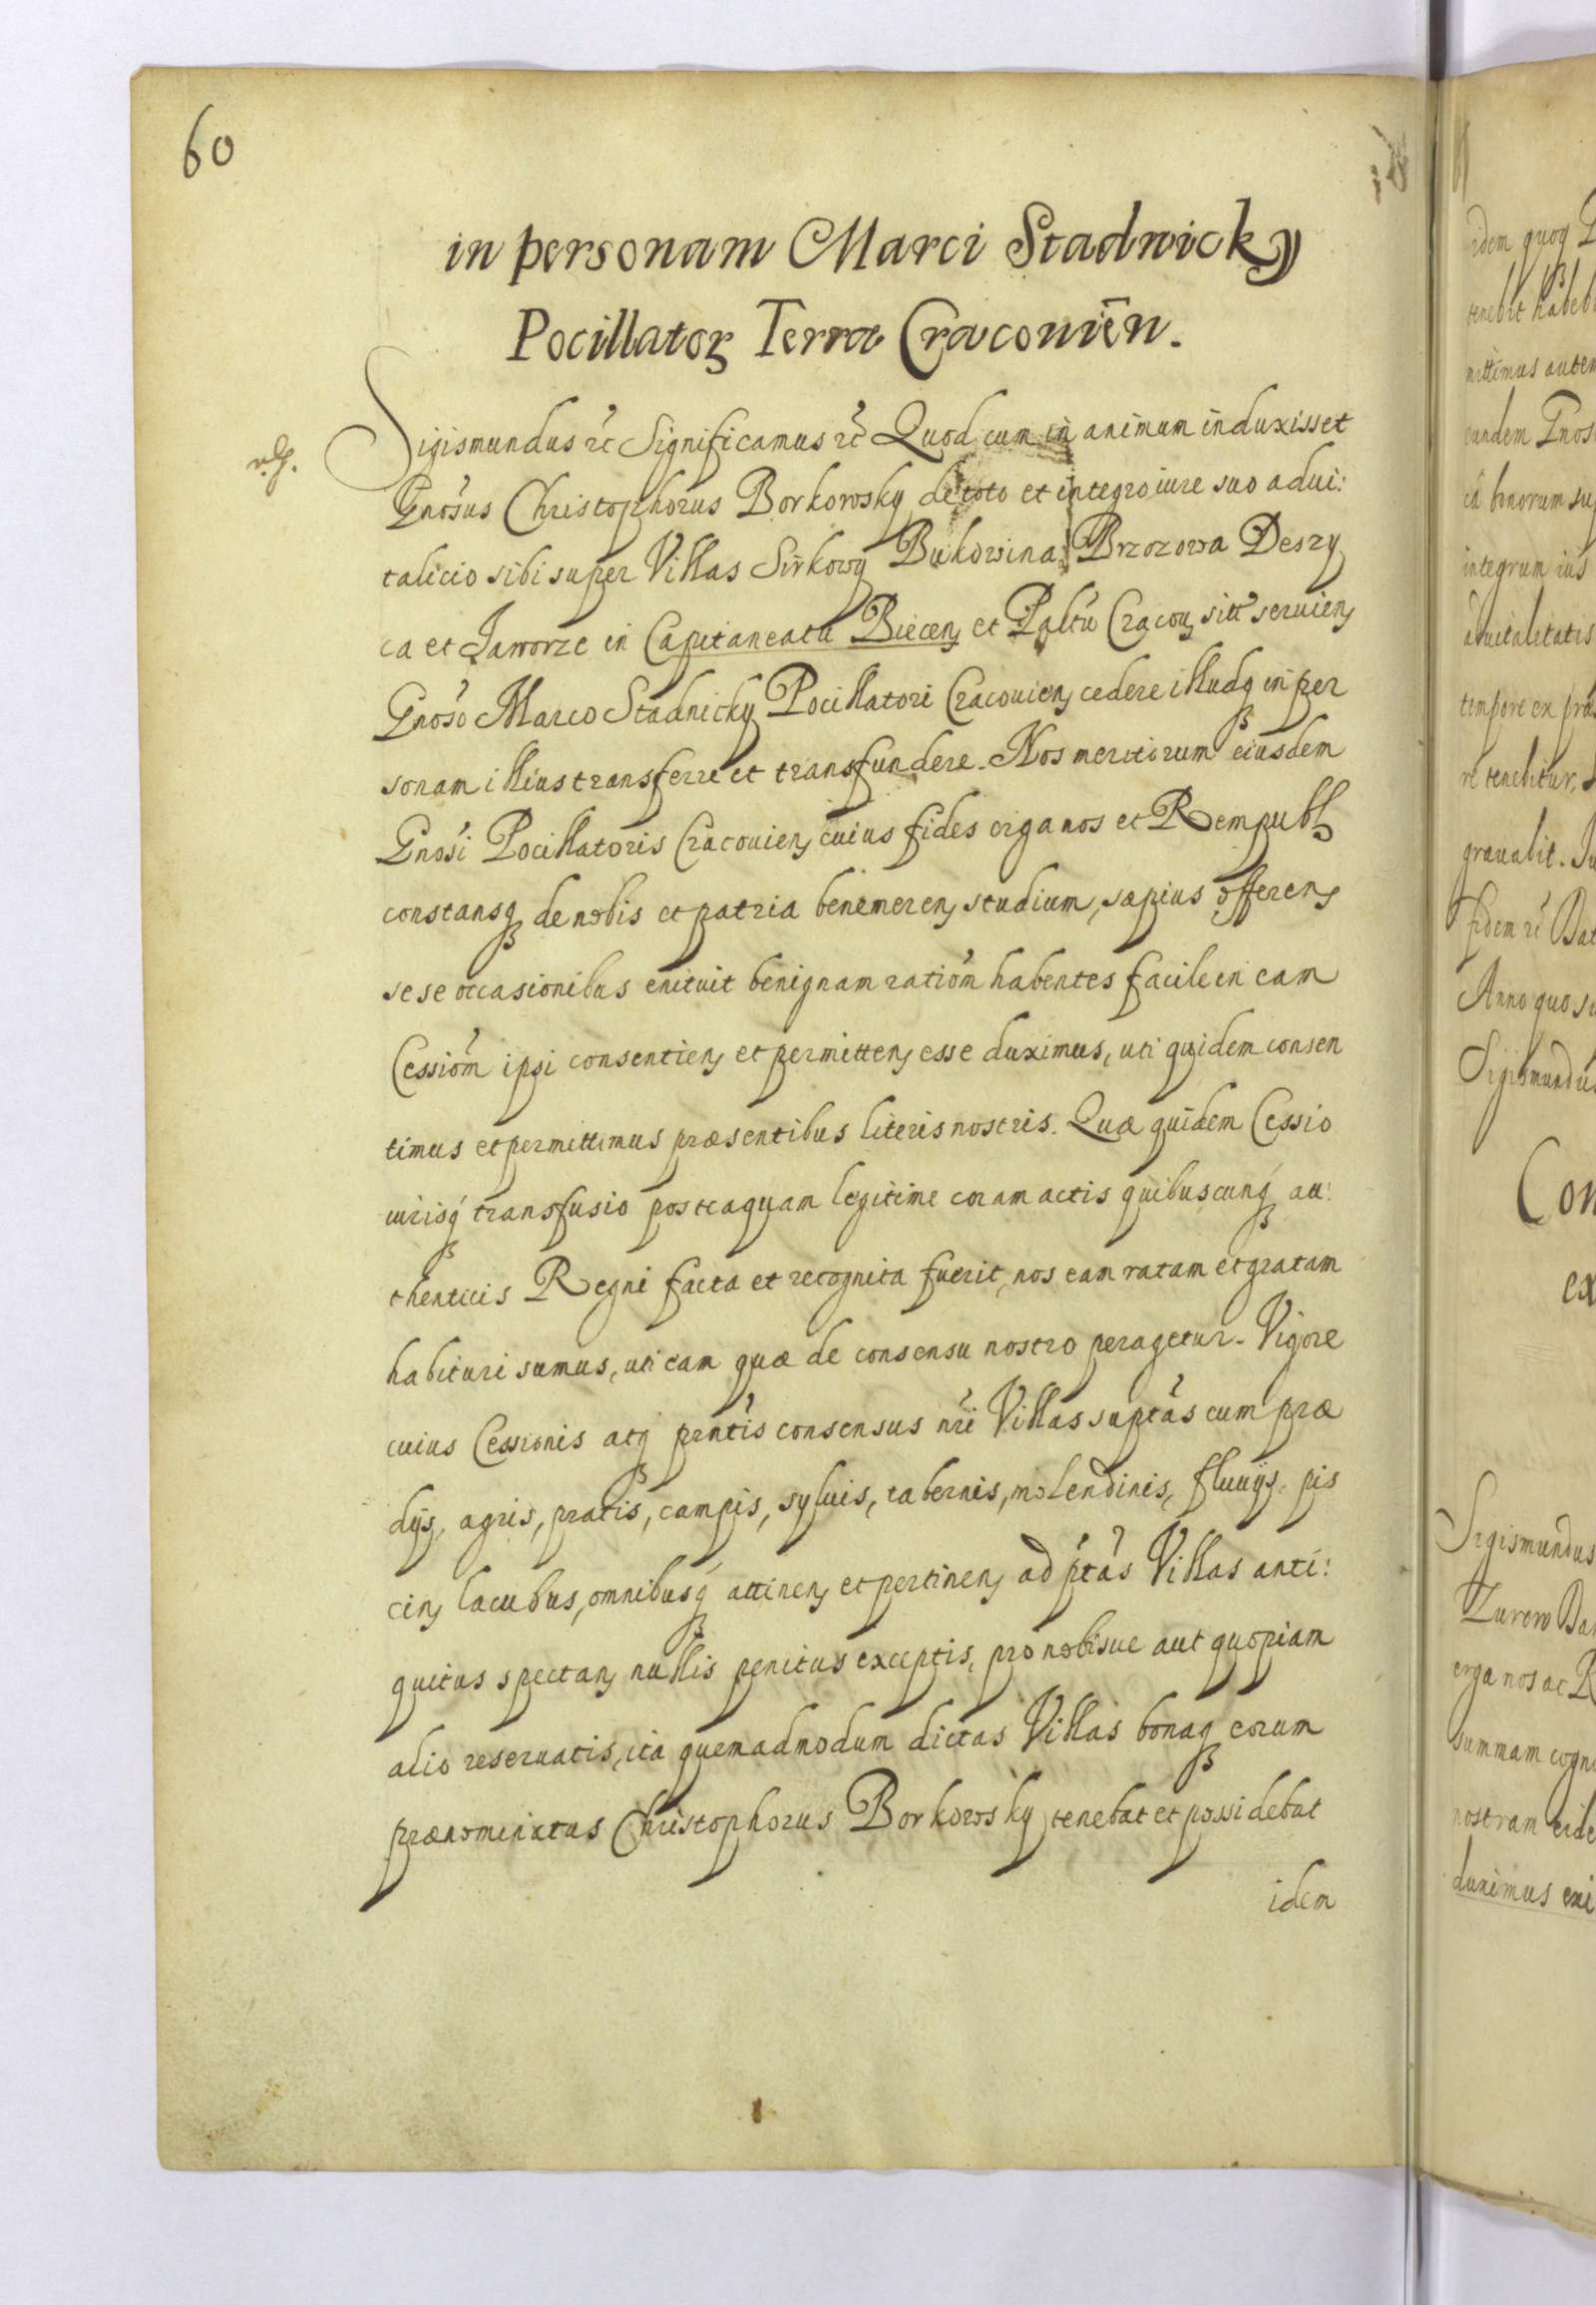 60
in personam Marci Stadnicky
Pocillator Terræ Cracouien.
Sigismundus etc Significamus etc Quod cum in animum induxisset
Gnosus Christophorus Borkowsky de toto et integro iure suo adui:
talicio sibi super Villas Sirkowy Bukowina Brzozowa Deszy
ca et Jaworze in Capitaneatu Biecen et Paltu Cracou sitt seruien
Gnoso Marco Stadnicky Pocillatori Cracouien cedere illudq in per
sonam illius transferre et transfundere. Nos meritorum eiusdem
Gnosi Pocillatoris Cracouien cuius fides erga nos et Rempubl
constansq de nobis et patria benemeren studium, sæpius offeren
sese occasionibus enituit benignam rationm habentes facile in eam
Cessionm ipsi consentien et permitten esse duximus, uti quidem consen
timus et permittimus præsentibus literis nostris. Quæ quidem Cessio
iurisq transfusio posteaquam legitime coram actis quibuscunq au:
thenticis Regni facta et recognita fuerit, nos eam ratam et gratam
habituri sumus, uti eam quæ de consensu nostro peragetur. Vigore
cuius Cessionis atq pntis consensus nri Villas suptas cum præ
dijs, agris, pratis, campis, syluis, tabernis, molendinis, fluuijs, pis
cin, lacubus, omnibusq attinen et pertinen ad ptas Villas anti:
quitus spectan nullis penitus exceptis, pro nobisue aut quopiam
alio reseruatis, ita quemadmodum dictas Villas bonaq eorum
prænominatus Christophorus Borkowsky tenebat et possidebat
idem